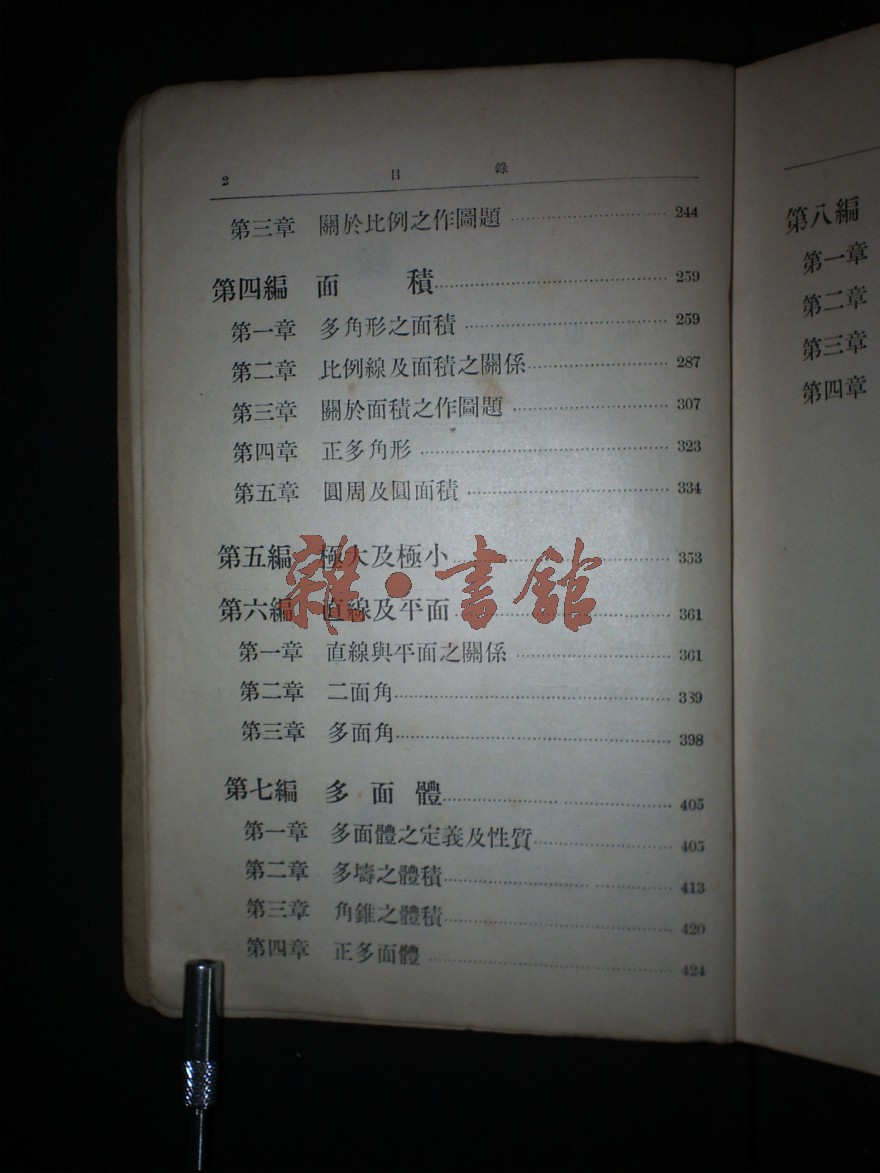 2 目錄
第三章 關於比例之作圖題 244
第四編 面積 259
第一章 多角形之面積 259
第二章 比例線及面積之關係 287
第三章 關於面積之作圖題 307
第四章 正多角形 323
第五章 圓周及圓面積 334
第五編 極大及極小 353
第六編 直線及平面 361
第一章 直線與平面之關係 361
第二章 二面角 389
第三章 多面角 398
第七編 多面體 405
第一章 多面體之定義及性質 405
第二章 多壔之體積 413
第三章 角錐之體積 420
第四章 正多面體 424
雜·書館
第八編
第一章
第二章
第三章
第四章